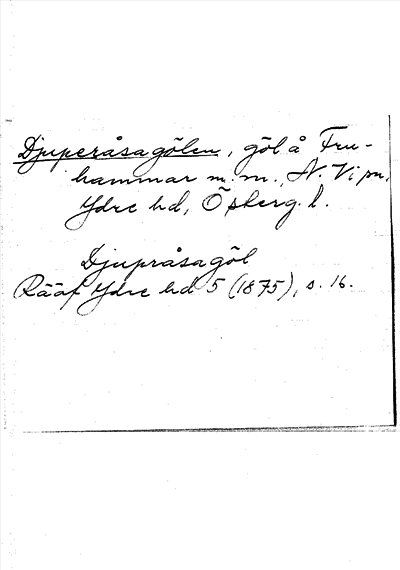 Djuperåsagölen, göl å Fru-
hammar m.m., N. Vi sn,
Ydre hd, Östberg. l.
Djupråsagöl
Rääf Ydre hd 5 (1875), s. 16.